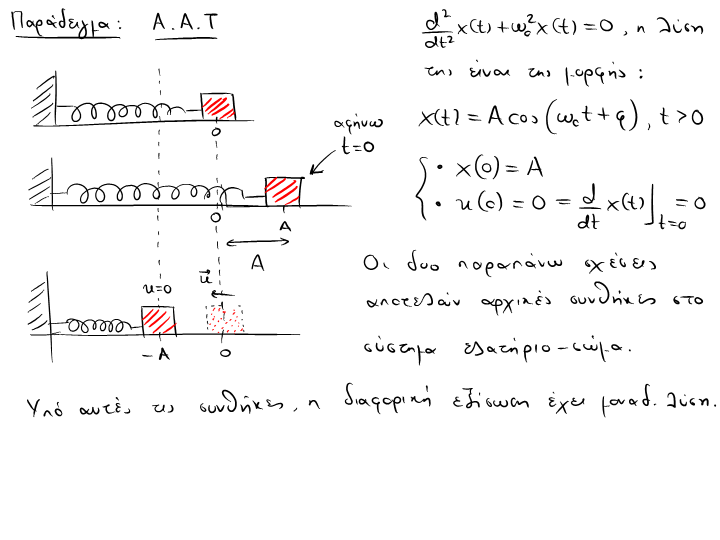 Παράδειγμα: Α.Α.Τ
0
αφήνω
t=0
0
A
A
u=0
u⃗
-A
0
d²/dt² x(t) + ω₀² x(t) = 0, η λύση
της είναι της μορφής:
x(t) = A cos(ω₀t + φ), t > 0
• x(0) = A
• u(0) = 0 = d/dt x(t)|t=0 = 0
Οι δυο παραπάνω σχέσεις
αποτελούν αρχικές συνθήκες στο
σύστημα ελατήριο-σώμα.
Υπό αυτές τις συνθήκες, η διαφορική εξίσωση έχει μοναδ. λύση.